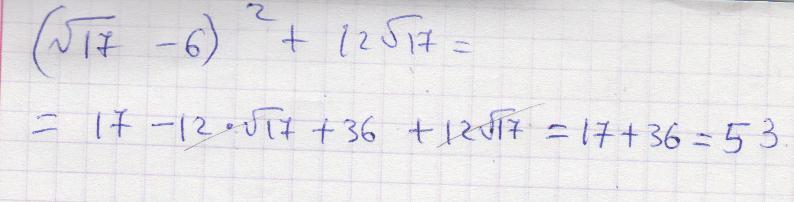 (√17 - 6)² + 12√17 =
= 17 - 12·√17 + 36 + 12√17 = 17 + 36 = 53.